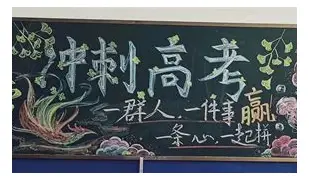 冲刺高考
一群人,一件事
一条心,一起拼
赢